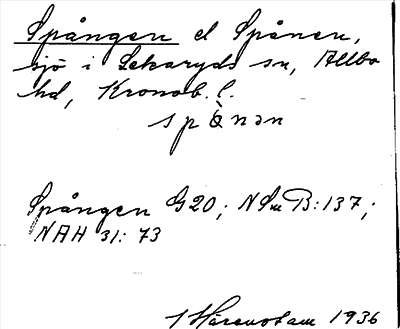 Spången el Spånen,
sjö i Lekaryds sn, Allbo
hd, Kronob. l.
spånən
Spången G20; NSm B:137;
NAH 31: 73
J Härenstam 1936